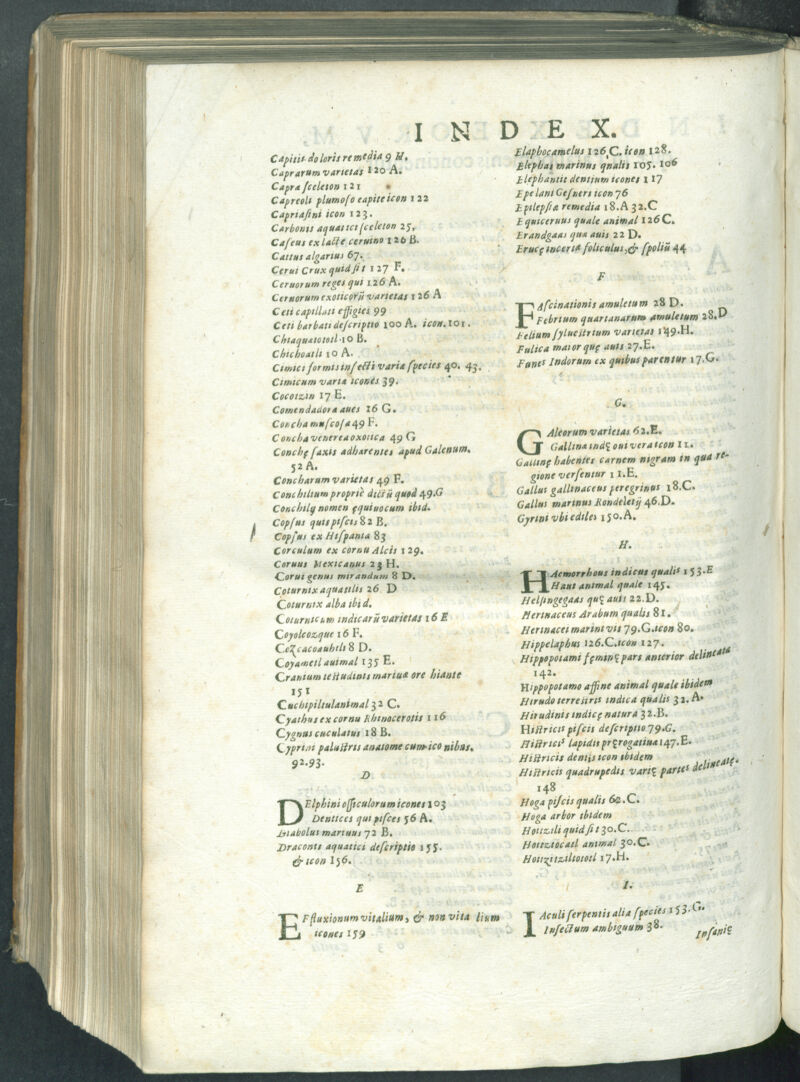 INDEX.
Capitis doloris remedia 9 H.
Caprarum varietas 120 A.
Capra sceleton 121
Capreoli plumoso capite icon 122
Capriasini icon 123.
Carbonis aquatici sceleton 25.
Caseus ex lacte ceruino 126 B.
Cattus algarius 67.
Cerui Crux quid sit 127 F.
Ceruorum reges qui 126 A.
Ceruorum exoticorū varietas 126 A
Ceti capillati effigies 99
Ceti barbati descriptio 100 A. icon. 101.
Chiaquatototl 10 B.
Chichoatli 10 A.
Cimici formis insecti varia species 40. 43.
Cimicum varia icones 39.
Cocotzin 17 E.
Comendadora aues 16 G.
Concha muscosa 49 F.
Concha venerea oxotica 49 G
Conchę saxis adhærentes apud Galenum.
52 A.
Concharum varietas 49 F.
Conchilium propriè dictū quod 49.G
Conchilij nomen ęquiuocum ibid.
Copsus quis piscis 82 B.
Copsus ex Hispania 83
Corculum ex cornu Alcis 129.
Coruus Mexicanus 23 H.
Corui genus mirandum 8 D.
Coturnix aquatilis 26 D
Coturnix alba ibid.
Coturnicum indicarū varietas 16 E
Coyolcozque 16 F.
Cozcacoauhtli 8 D.
Coyametl auimal 135 E.
Cranium testudinis marinæ ore hiante
151
Cuchipiltulanimal 32 C.
Cyathus ex cornu Rhinocerotis 116
Cygnus cuculatus 18 B.
Cyprini palustris anatome cum iconibus.
92.93.
D
DElphini officulorum icones 103
Dentices qui pisces 56 A.
Diabolus marinus 72 B.
Draconis aquatici descriptio 155.
& icon 156.
E
EFfluxionum vitalium, & non vitalium
icones 159
Elaphocamelus 126.C. icon 128.
Elephas marinus qualis 105. 106
Elephantis dentium icones 117
Epelani Gesneri icon 76
Epilepsiæ remedia 18.A 32.C
Equiceruus quale animal 126 C.
Erandgaas quæ auis 22 D.
Erucę incertæ foliculus, & spoliū 44
F
FAscinationis amuletum 28 D.
Febrium quartanarum amuletum 28.D
Felium syluestrium varietas 149.H.
Fulica maior quę auis 27.E.
Funes Indorum ex quibus parentur 17.G.
G.
GAleorum varietas 62.E.
Gallinaindę oui vera icon 11.
Gallinę habentes carnem nigram in qua re-
gione versentur 11.E.
Gallus gallinaceus peregrinus 18.C.
Gallus marinus Rondeletij 46.D.
Gyrini vbi ediles 150.A.
H.
HAemorrhous indicus qualis 153.E
Haut animal quale 145.
Helsingegaas quę auis 22.D.
Herinaceus Arabum qualis 81.
Herinacei marini vis 79.G.icon 80.
Hippelaphus 126.C.icon 127.
Hippopotami fęminę pars anterior delineata
142.
Hippopotamo affine animal quale ibidem
Hirudo terrestris indica qualis 32. A.
Hirudinis indicę natura 32.B.
Histricis piscis descriptio 79.G.
Histricis lapidis pręrogatiua 147.E.
Histricis dentis icon ibidem
Histricis quadrupedis varię partes delineatę.
148
Hoga piscis qualis 62.C.
Hoga arbor ibidem
Hoitzili quid sit 30.C.
Hoitztocatl animal 30.C.
Hoitzitziltototl 17.H.
I.
IAculi serpentis alia species 153.G.
Insectum ambiguum 38.
Insanię